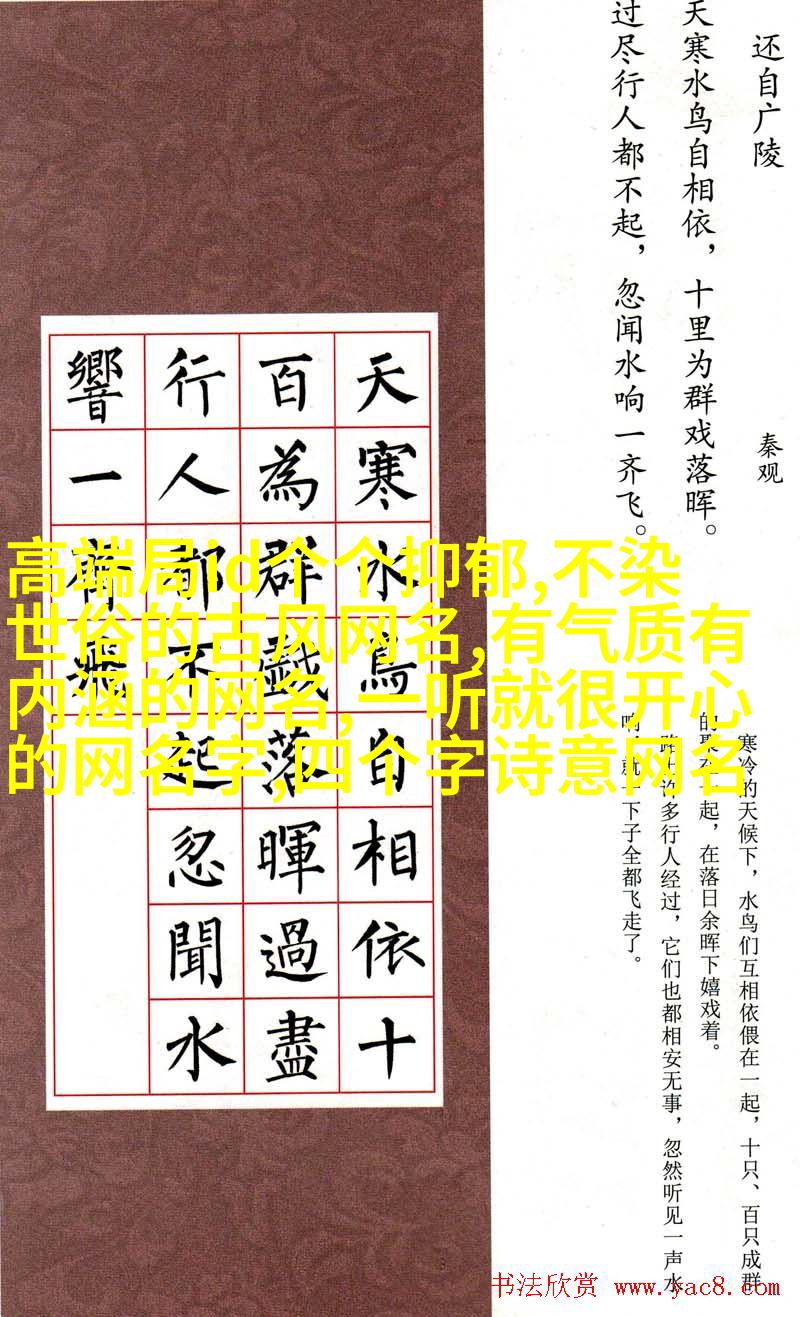 还自广陵
秦观
天寒水鸟自相依，十里为群戏落晖。
过尽行人都不起，忽闻水响一齐飞。
寒冷的天候下，水鸟们互相依偎在一起，十只、百只成群
的聚在一起，在落日余晖下嬉戏着。
路许多行人经过，它们也都相安无事，忽然听见一声水
响，就一下子全都飞走了。
天寒水鳥自相依十
百為群戲落暉過盡
行人都不起忽聞水
響一齊飛
高端局id个个抑郁,不染
世俗的古风网名,有气质有
内涵的网名,一听就很开心
的网名字,四个字诗意网名
书法欣赏 www.yac8.com